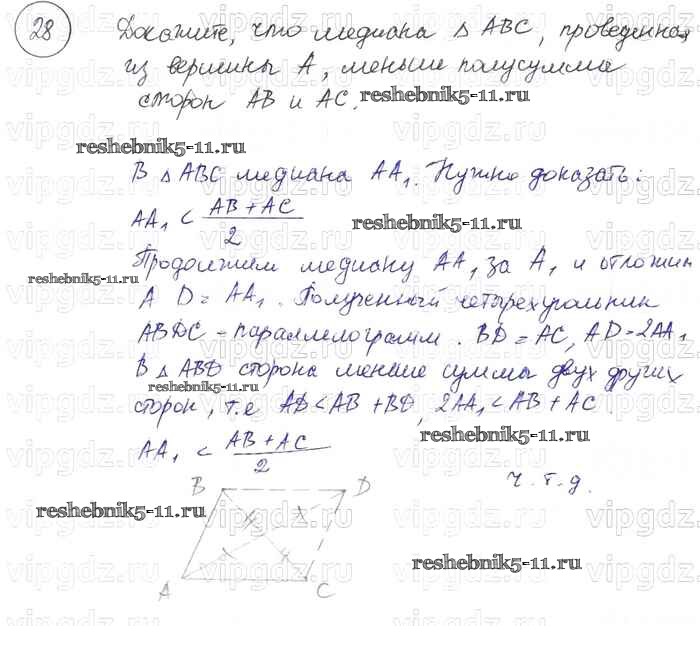 28 Докажите, что медиана △ ABC, проведенная
из вершины A, меньше полусуммы
сторон AB и AC. reshebnik5-11.ru
reshebnik5-11.ru
В △ ABC медиана AA₁. Нужно доказать:
AA₁ < (AB + AC)/2 reshebnik5-11.ru
Продолжим медиану AA₁ за A₁ и отложим
reshebnik5-11.ru
A D = AA₁. Полученный четырехугольник
ABDC – параллелограмм. BD = AC, AD = 2AA₁
В △ ABD сторона меньше суммы двух других
reshebnik5-11.ru
сторон, т.е AD < AB + BD, 2AA₁ < AB + AC.
reshebnik5-11.ru
AA₁ < (AB + AC)/2
ч.т.д.
B D
reshebnik5-11.ru
reshebnik5-11.ru
A C
vipgdz.ru